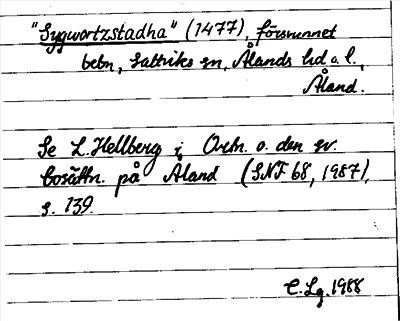 "Sygwartzstadha" (1477), försvunnet
bebn, Saltviks sn, Ålands hd o. l.,
Åland.
Se L. Hellberg i Ortn. o. den sv.
bosättn. på Åland (SNF 68, 1987),
s. 139.
C. Lg. 1988